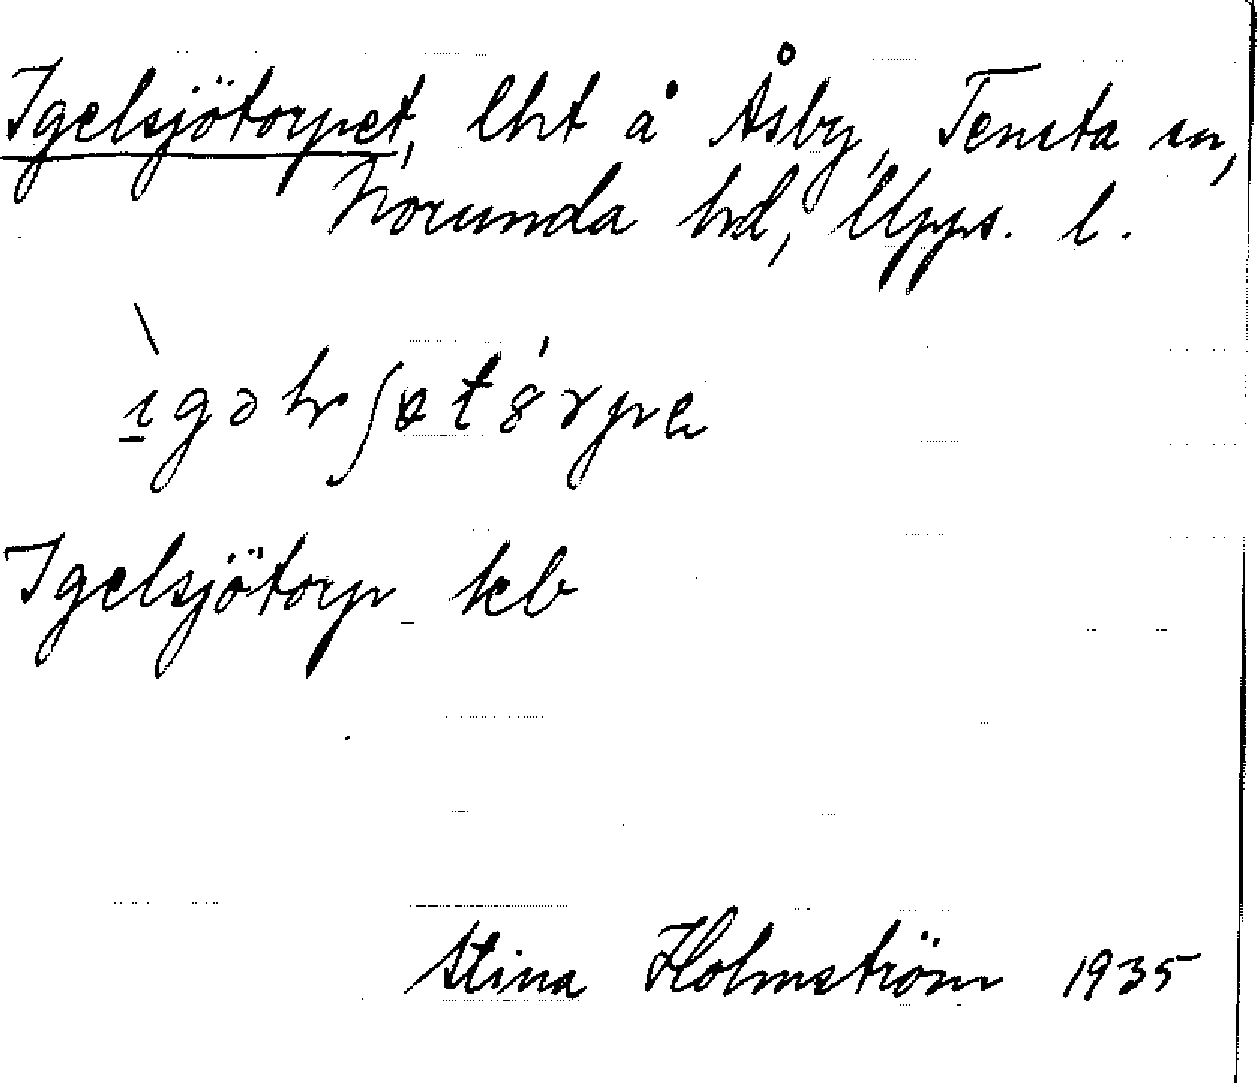 Igelsjötorpet, lht å Åsby, Tensta sn,
Norunda hd, Upps. l.
Igelsjötorp keb
Stina Holmström 1935